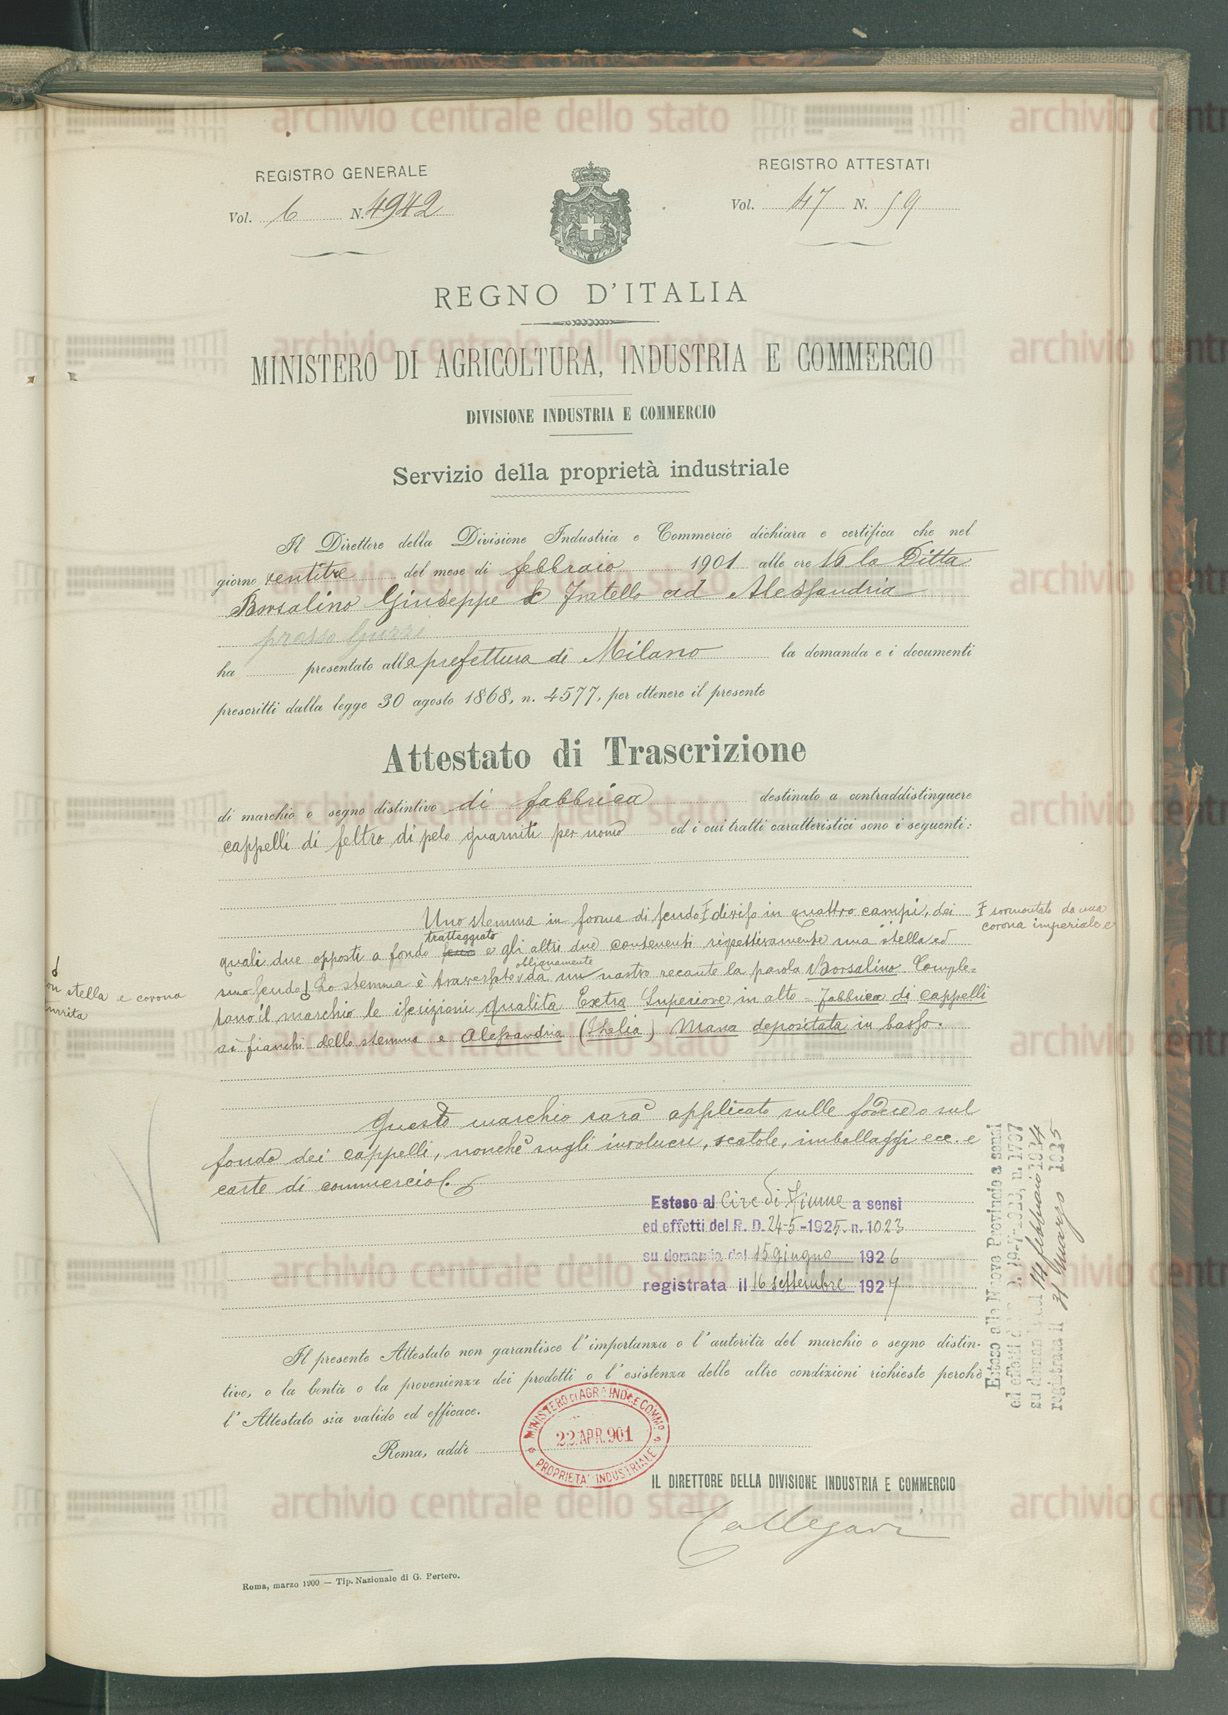 REGISTRO GENERALE
Vol. 6 N. 4942
REGISTRO ATTESTATI
Vol. 47 N. 59
REGNO D'ITALIA
MINISTERO DI AGRICOLTURA, INDUSTRIA E COMMERCIO
DIVISIONE INDUSTRIA E COMMERCIO
Servizio della proprietà industriale
Il Direttore della Divisione Industria e Commercio dichiara e certifica che nel
giorno ventitre del mese di febbraio 1901 alle ore 16 la Ditta
Borsalino Giuseppe & Fratello ad Alessandria
presso Guzzi
ha presentato alla prefettura di Milano la domanda e i documenti
prescritti dalla legge 30 agosto 1868, n. 4577, per ottenere il presente
Attestato di Trascrizione
di marchio o segno distintivo di fabbrica destinato a contraddistinguere
cappelli di feltro di pelo guarniti per uomo ed i cui tratti caratteristici sono i seguenti:
Uno stemma in forma di scudo diviso in quattro campi, dei
sormontato da una
corona imperiale e
quali due opposti a fondo tratteggiato e gli altri due contenenti rispettivamente una stella ed
uno scudo Lo stemma è traversato obliquamente da un nastro recante la parola Borsalino. Comple-
tano il marchio le iscrizioni Qualità Extra Superiore in alto = Fabbrica di cappelli
ai fianchi dello stemma e Alessandria (Italia) Marca depositata in basso.
con stella e corona
turrita
Questo marchio sarà applicato sulle fodere o sul
fondo dei cappelli, nonchè sugli involucri, scatole, imballaggi ecc. e
carte di commercio.
Esteso al Circ di Fiume a sensi
ed effetti del R. D. 24-5-1925. n. 1023
su domanda del 15 giugno 1926
registrata il 16 settembre 1927
Esteso alle Nuove Provincie a sensi
su domanda del 14 febbraio 1924
registrata il 31 marzo 1925
Il presente Attestato non garantisce l'importanza o l'autorità del marchio o segno distin-
tivo, o la bontà o la provenienza dei prodotti o l'esistenza delle altre condizioni richieste perchè
l'Attestato sia valido ed efficace.
Roma, addì
MINISTERO DI AGR. IND. E COMM.
22 APR. 901
PROPRIETA' INDUSTRIALE
IL DIRETTORE DELLA DIVISIONE INDUSTRIA E COMMERCIO
Callegari
Roma, marzo 1900 — Tip. Nazionale di G. Bertero.
archivio centrale dello stato